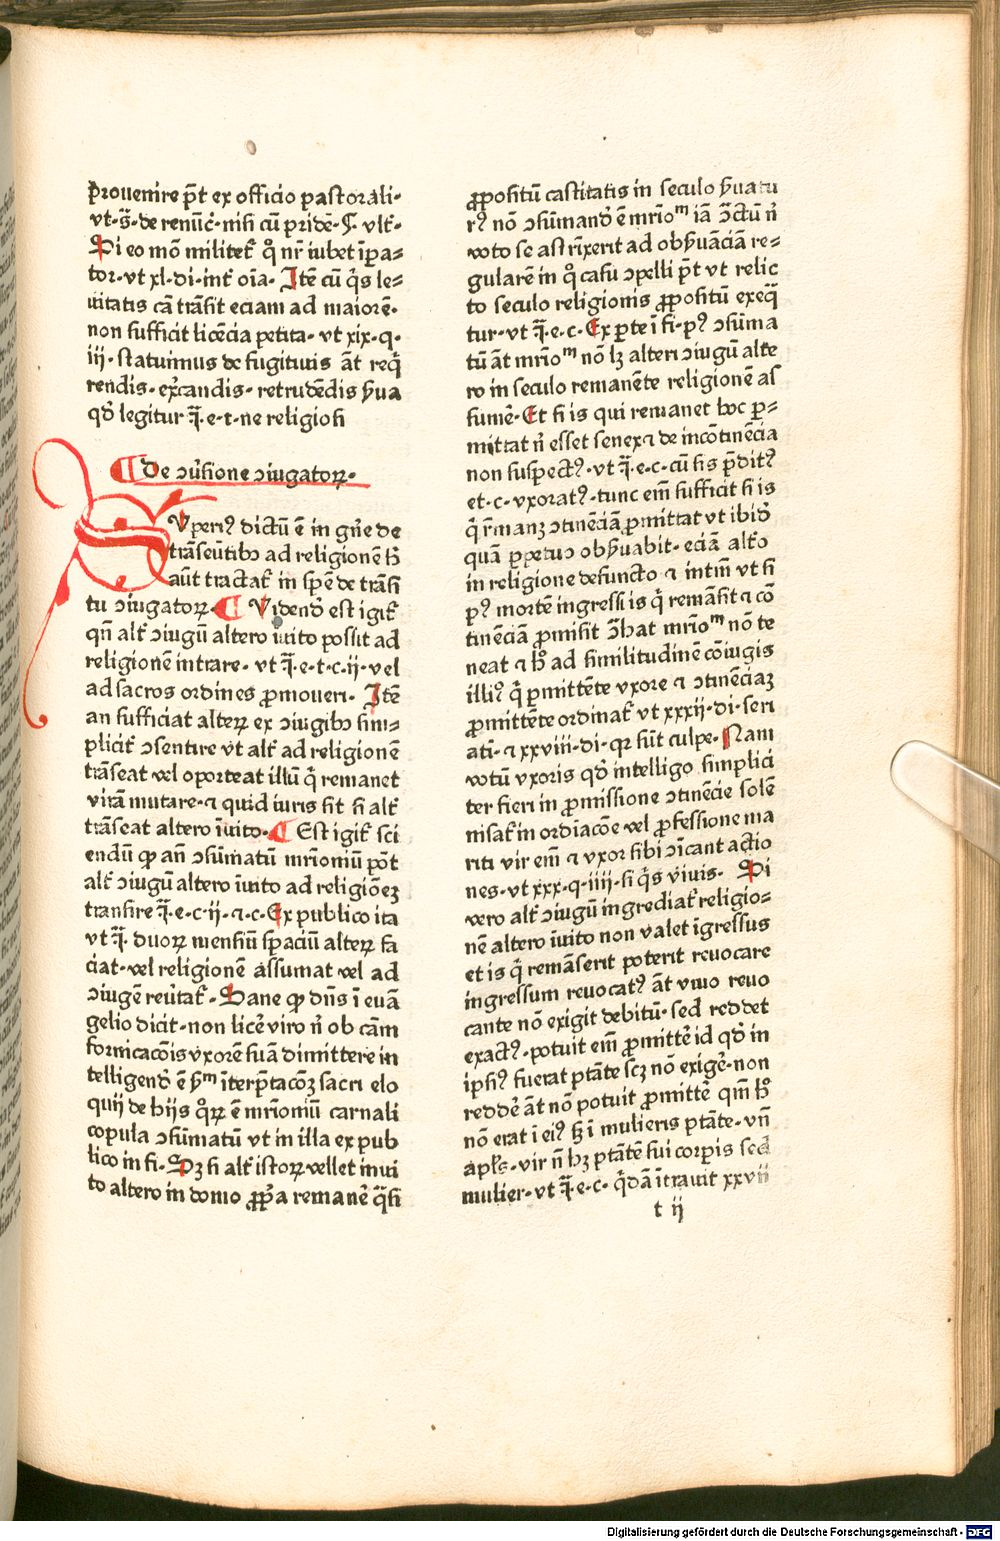 prouenire p̄t ex officio pastorali·
vt·s̄·de renūc̄·nisi cū pridē·§·vlt̄·
Si eo mō militet᷑ qͦ nr̄ iubet īpa⸗
tor·vt xl·di·int᷑ oīa· Itē cū q̇s le⸗
uitatis cā trāsit eciam ad maiorē·
non sufficit licēcia petita· vt xix·q·
iij·statuimus de fugitiuis āt reqͥ
rendis·exͨcandis·retrudēdis ẜua
qd̓ legitur q̄·e·t·ne religiosi
¶De ↄuͦsione ↄiugatoꝝ·
SVperiꝰ dictū ē in gn̄e de
trāseūtibꝫ ad religionē h̄
aūt tractat᷑ in sp̄ē de trāsi
tu ↄiugatoꝝ· ¶ Videnḋ est igit᷑
qn̄ alt᷑ ↄiugū altero īuito possit ad
religionē intrare· vt q̄·e·t·c·ij·vel
ad sacros ordines ꝓmoueri· Itē
an sufficiat alteꝝ ex ↄiugibꝫ sim⸗
plicit᷑ ↄsentire vt alt᷑ ad religionē
trāseat vel oporteat illū qͥ remanet
vitā mutare·⁊ quid iuris sit si alt᷑
trāseat altero īuito· ¶ Est igit᷑ sci
endū ꝙ an̄ ↄsūmatū mr̄ioniū pōt
alt᷑ ↄiugū altero īuito ad religiōeꝫ
transire q̄·e·c·ij·⁊·c·Ex publico ita
vt q̄· duoꝝ mensiū spaciū alteꝝ fa
ciat·vel religionē assumat vel ad
ↄiugē reu̓tat᷑· Sane ꝙ dn̄s ī euā
gelio dicit·non licē viro n̄ ob cām
fornicacōis vxorē suā dimittere in
telligenḋ ē ẜm īterp̄tacōꝫ sacri elo
quij de hijs qͦꝝ ē mr̄ioniū carnali
copula ↄsūmatū vt in illa ex pub
lico in fi·Sꝫ si alt᷑ istoꝝ vellet inui
to altero in domo ꝓpͥa remanē qͣsi
ꝓpositū castitatis in seculo ẜuatu
rꝰ nō ↄsūmanḋ ē mr̄ioᵐ iā ↄ̄ctū n̄
voto se astrīxerit ad obẜuāciā re⸗
gularē in qͦ casu ↄpelli p̄t vt relic
to seculo religionis ꝓpositū exeq̄
tur·vt q̄·e·c·Ex ꝑte ī fi·pꝰ ↄsūma
tū āt mr̄ioᵐ nō lꝫ alteri ↄiugū alt᷑e
ro in seculo remanēte religionē as
sumē·Et si is qui remanet hoc ꝑ⸗
mittat n̄ esset senex ⁊ de incōtinēcia
non suspectꝰ·vt q̄·e·c·cū sis p̄ditꝰ
et·c·vxoratꝰ·tunc em̄ sufficit si is
qͥ r̄manꝫ ↄtinēciā ꝓmittat vt ibiḋ
quā ꝑpetuo obẜuabit·eciā alt᷑o
in religione defuncto ⁊ intm̄ vt si
pꝰ mortē ingressi is qͥ remāsit ⁊ cō
tinēciā ꝓmisit ↄ̄hat mr̄ioᵐ nō te
neat ⁊ hͦ ad similitudinē cōiugis
illiꝰ qͥ ꝑmittēte vxore ⁊ ↄtinēciaꝫ
ꝓmittēte ordinat᷑ vt xxxij·di·seri
ati·⁊ xxviii·di·qꝛ sūt culpe·Nam
votū vxoris qd̓ intelligo simplici
ter fieri in ꝓmissione ↄtinēcie solē
nisat᷑ in ordīacōe vel ꝓfessione ma
riti vir em̄ ⁊ vxor sibi ↄīcant actio
nes·vt xxx·q·iiij·si q̇s viuis· Si
vero alt᷑ ↄiugū ingrediat᷑ religio⸗
nē altero īuito non valet īgressus
et is qͥ remāserit poterit reuocare
ingressum reuocatꝰ āt viuo reuo
cante nō exigit debitū·sed reddet
exactꝰ·potuit em̄ ꝓmittē id qd̓ in
ipsiꝰ fuerat ptāte scꝫ nō exigē·non
reddē āt nō potuit ꝓmittē qm̄ hͦ
nō erat ī eiꝰ sꝫ ī mulieris ptāte·vn̄
apl̄s·vir n̄ hꝫ ptātē sui corꝑis sed
mulier·vt q̄·e·c· qͥdā ītrauit xxvii
t ij
Digitalisierung gefördert durch die Deutsche Forschungsgemeinschaft - DFG